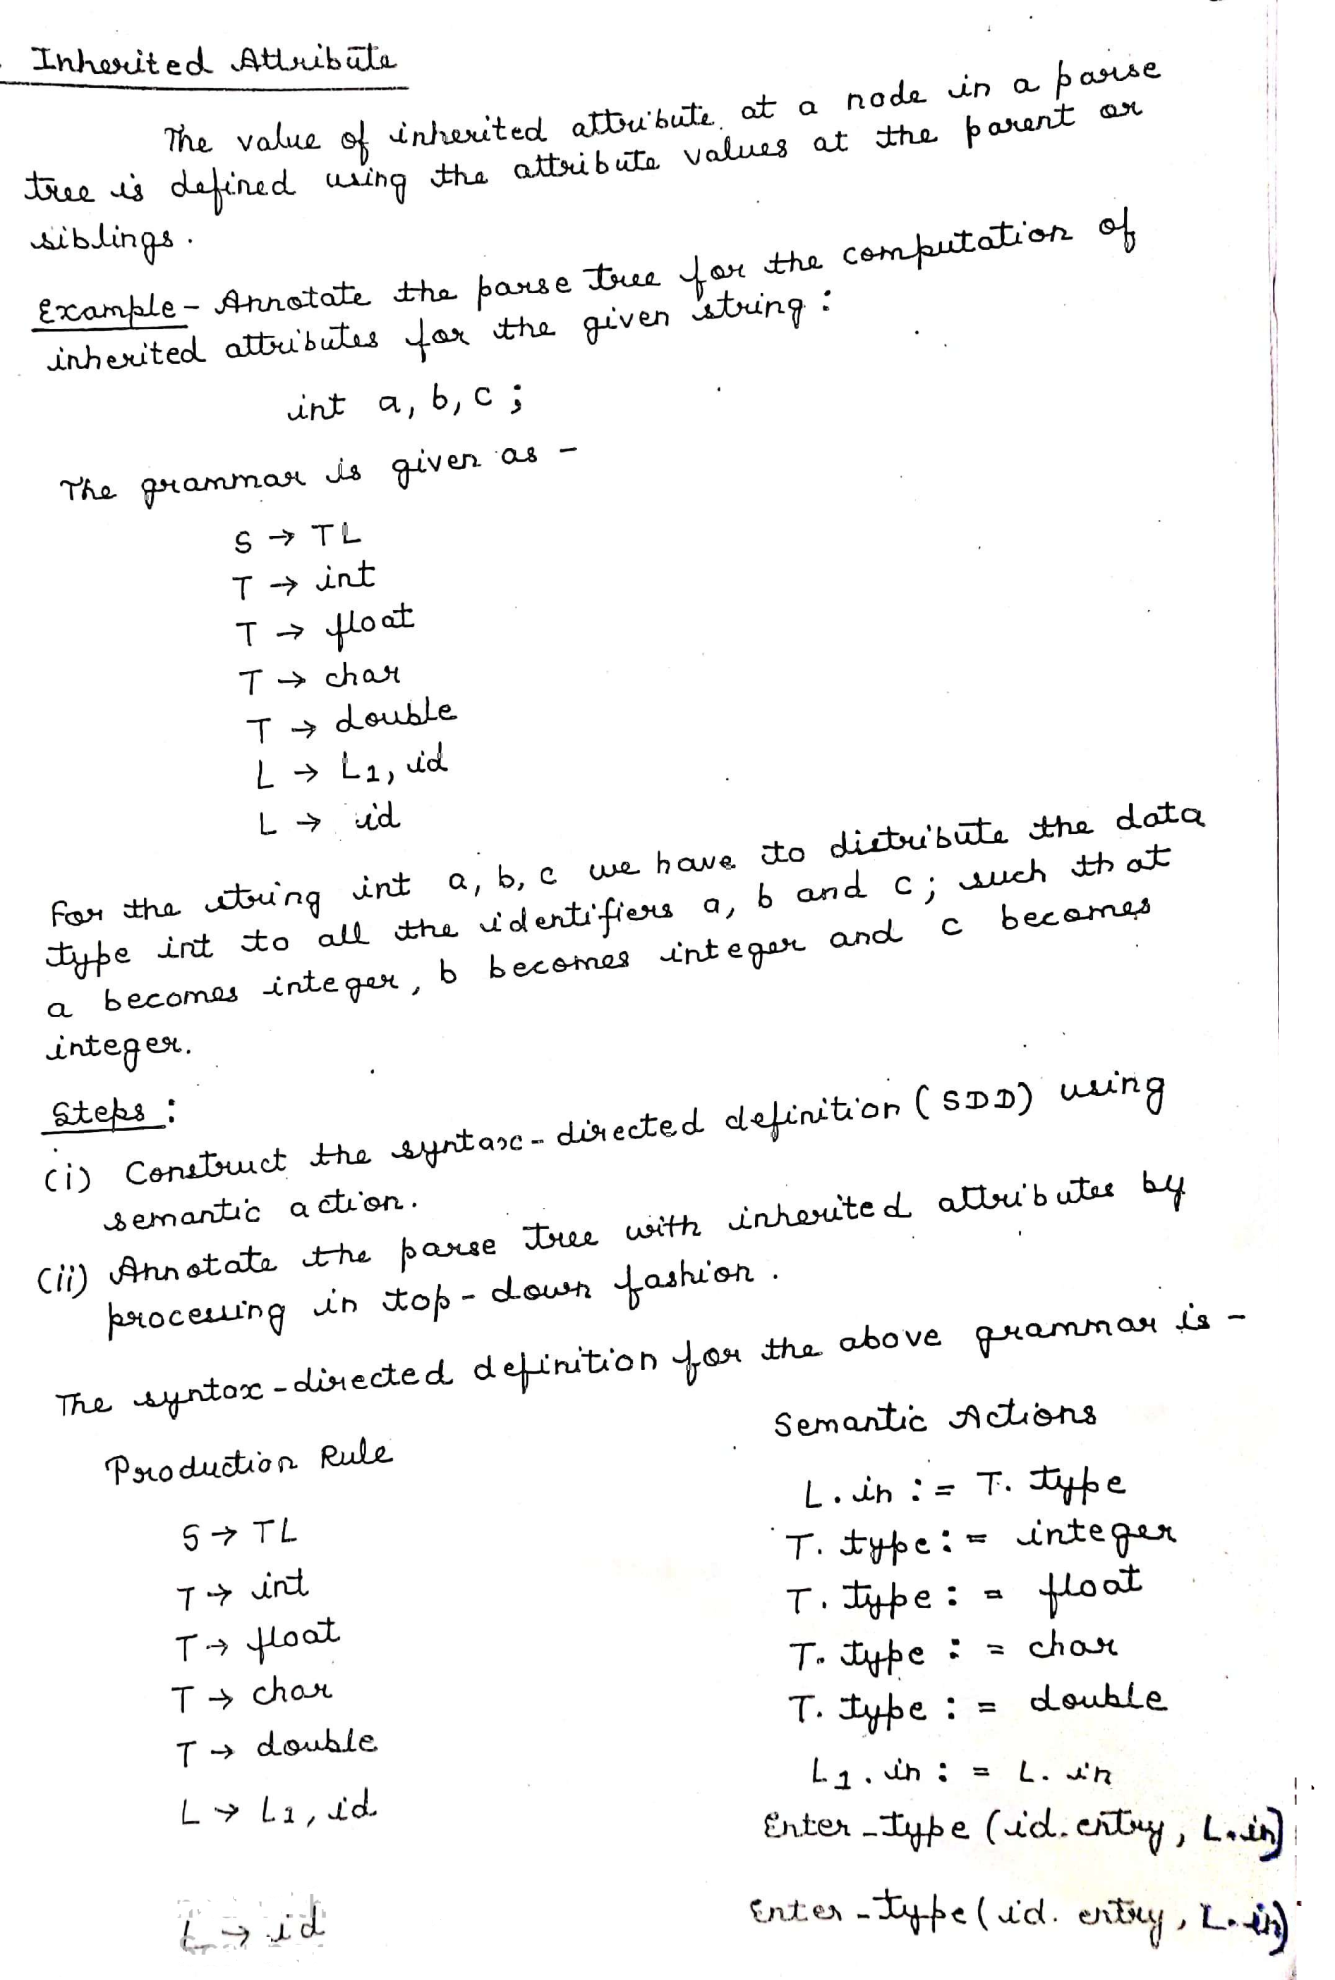 Inherited Attribute
The value of inherited attribute at a node in a parse
tree is defined using the attribute values at the parent or
siblings.
Example - Annotate the parse tree for the computation of
inherited attributes for the given string :
int a, b, c ;
The grammar is given as -
S → TL
T → int
T → float
T → char
T → double
L → L1, id
L → id
For the string int a, b, c we have to distribute the data
type int to all the identifiers a, b and c ; such that
a becomes integer, b becomes integer and c becomes
integer.
Steps :
(i) Construct the syntax-directed definition (SDD) using
semantic action.
(ii) Annotate the parse tree with inherited attributes by
processing in top-down fashion.
The syntax-directed definition for the above grammar is -
Production Rule Semantic Actions
S → TL L.in := T.type
T → int T.type := integer
T → float T.type := float
T → char T.type := char
T → double T.type := double
L → L1, id L1.in := L.in
Enter_type (id.entry, L.in)
L → id Enter_type (id.entry, L.in)